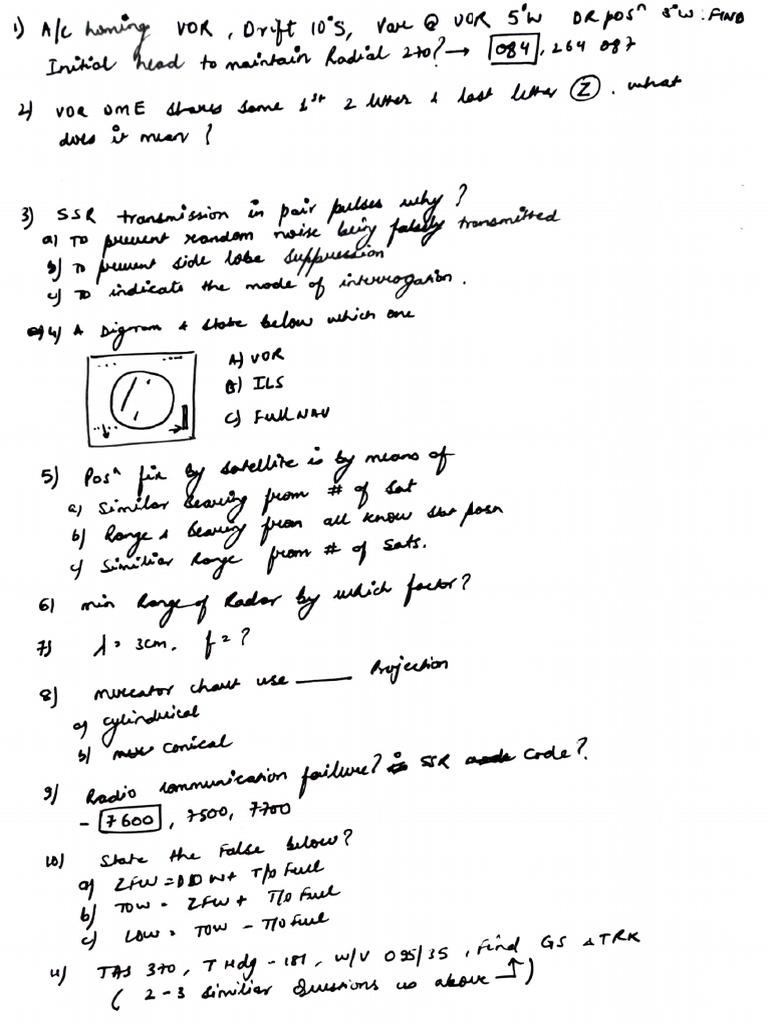 1) A/c homing VOR, Drift 10°S, Var @ VOR 5°W DR posⁿ 3°W: FIND
Initial head to maintain Radial 270? → 084, 264 087
2) VOR DME shares same 1st 2 letter & last letter Z. what
does it mean?
3) SSR transmission in pair pulses why?
a) TO prevent random noise being falsely transmitted
b) To prevent side lobe suppression
c) To indicate the mode of interrogation.
4) A Digram & state below which one
A) VOR
B) ILS
C) Full NAV
5) Posⁿ fix by satellite is by means of
a) Similar bearing from # of sat
b) Range & bearing from all know stat posn
c) Similiar Range from # of sats.
6) min Range of Radar by which factor?
7) λ = 3cm. f = ?
8) mercator chart use ______ Projection
a) cylindrical
b) conical
9) Radio communication failure? SSR code?
- 7600, 7500, 7700
10) State the False below?
a) ZFW = DOW + T/O Fuel
b) TOW = ZFW + T/O Fuel
c) LOW = TOW - T/O Fuel
11) TAS 370, T Hdg - 181, W/V 095/35, Find GS & TRK
(2-3 similiar Questions as above →)